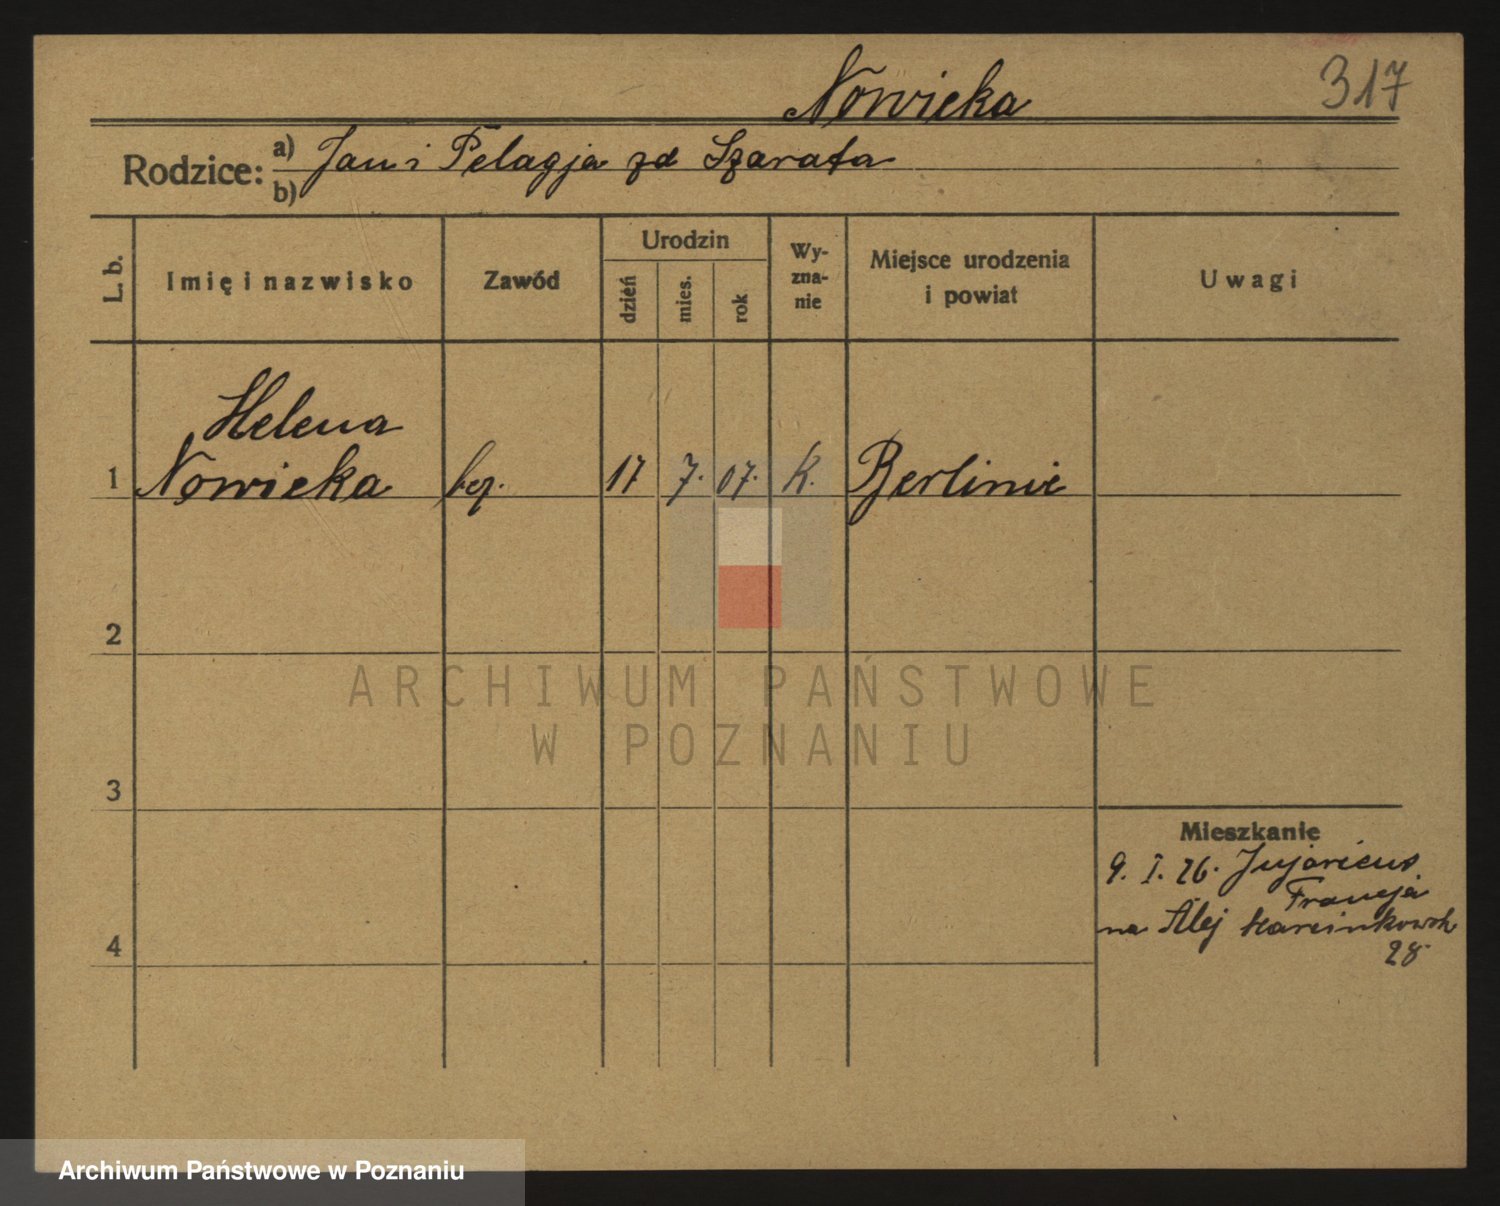 Nowicka
317
Rodzice:
a) Jan i Pelagja zd Szarata
b)
L. b.
Imię i nazwisko
Zawód
Urodzin
dzień
mies.
rok
Wy-
zna-
nie
Miejsce urodzenia
i powiat
Uwagi
Helena
1 Nowicka bez. 17 7. 07. K. Berlinie
2
ARCHIWUM PAŃSTWOWE
W POZNANIU
3
Mieszkanie
9. I. 26.
Francja
na Alej Marcinkowsk
28
4
Archiwum Państwowe w Poznaniu